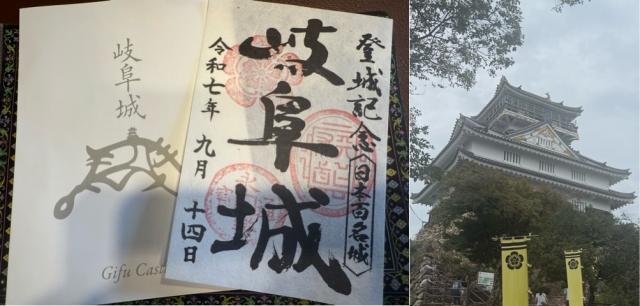 岐阜城
Gifu Cast
登城記念〈日本百名城〉
岐阜城
令和七年 九月 十四日